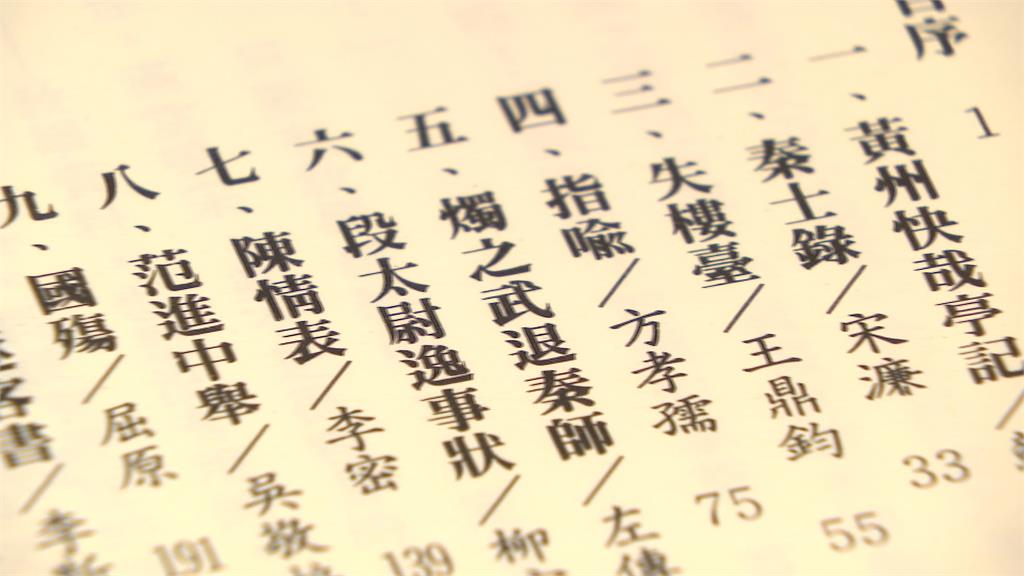 序 1
一、黃州快哉亭記／
二、秦士錄／宋濂 33
三、失樓臺／王鼎鈞 55
四、指喻／方孝孺 75
五、燭之武退秦師／左傳
六、段太尉逸事狀／柳
七、陳情表／李密 139
八、范進中舉／吳敬
九、國殤／屈原 191
客書／李